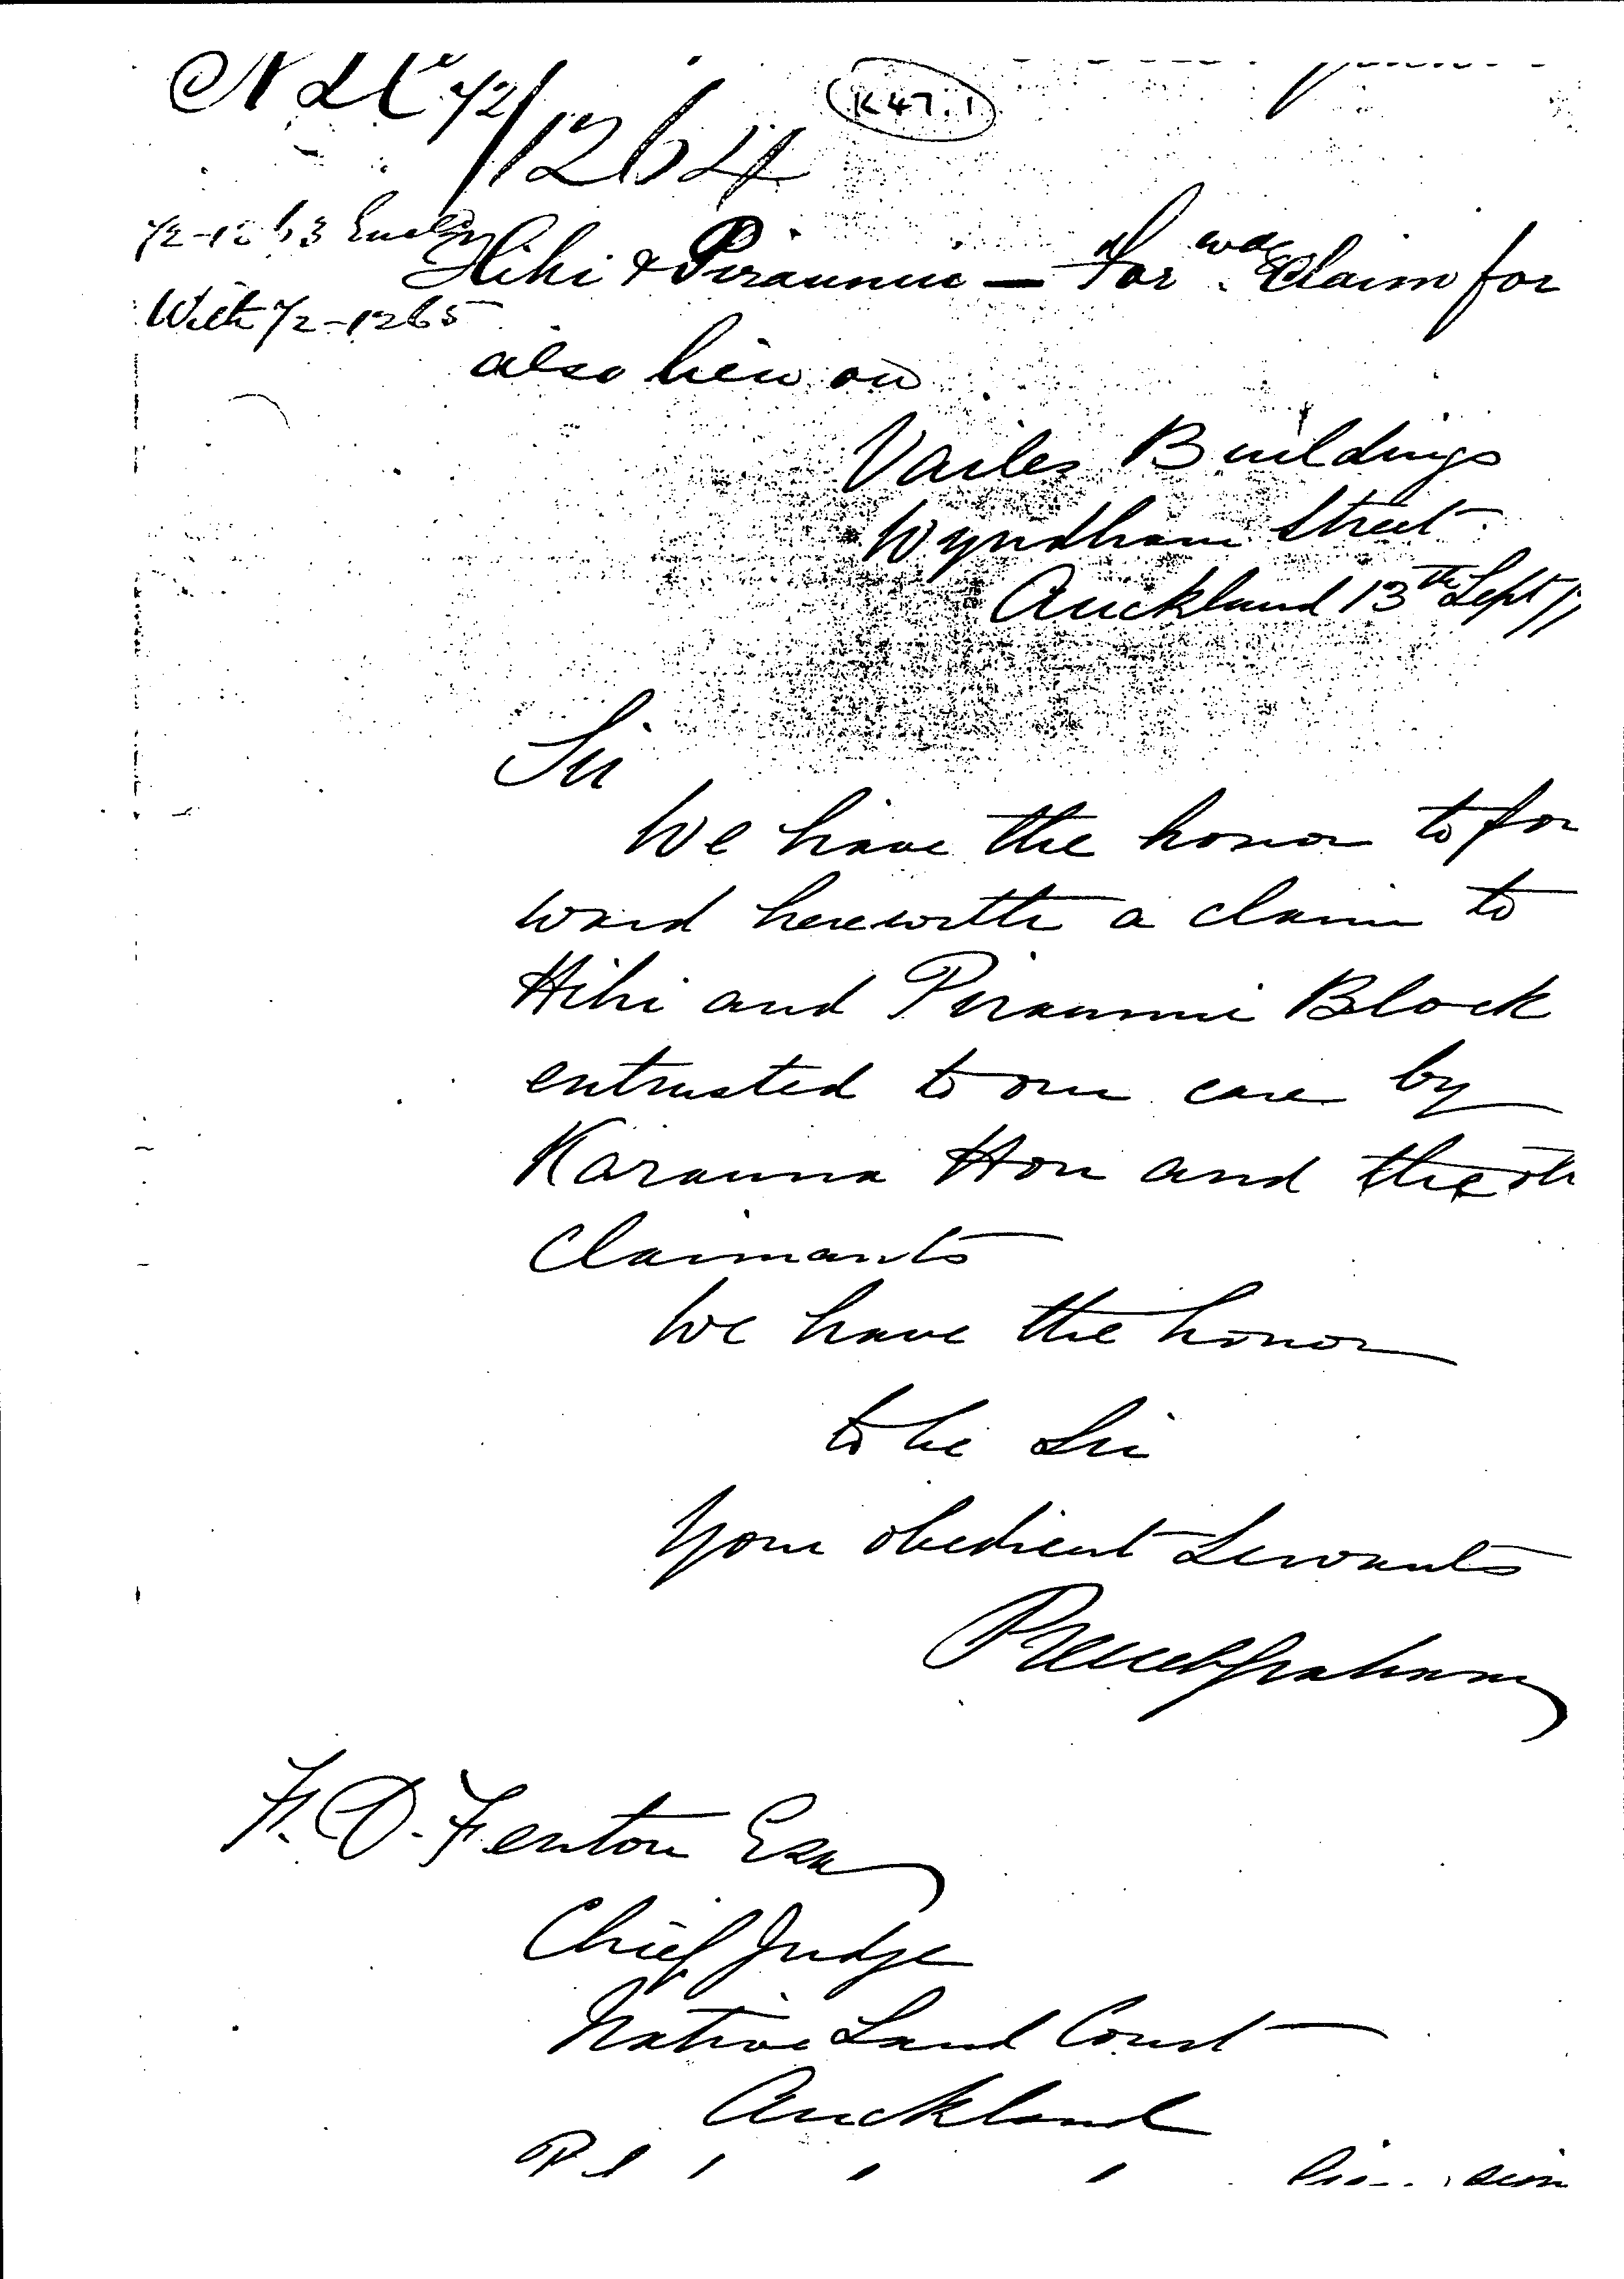 NLC 72/1264
K47.1
72-1263 Encl
Hihi & Piraunui — For wdg Claim for
With 72-1265
also lien on
Vailes Buildings
Wyndham Street
Auckland 13th Sept 7
Sir
We have the honor to for
ward herewith a claim to
Hihi and Piraunui Block
entrusted to our care by
Karauna Hou and the oth
Claimants
We have the honor
to be Sir
Your obedient Servants
F. D. Fenton Esq
Chief Judge
Native Land Court
Auckland